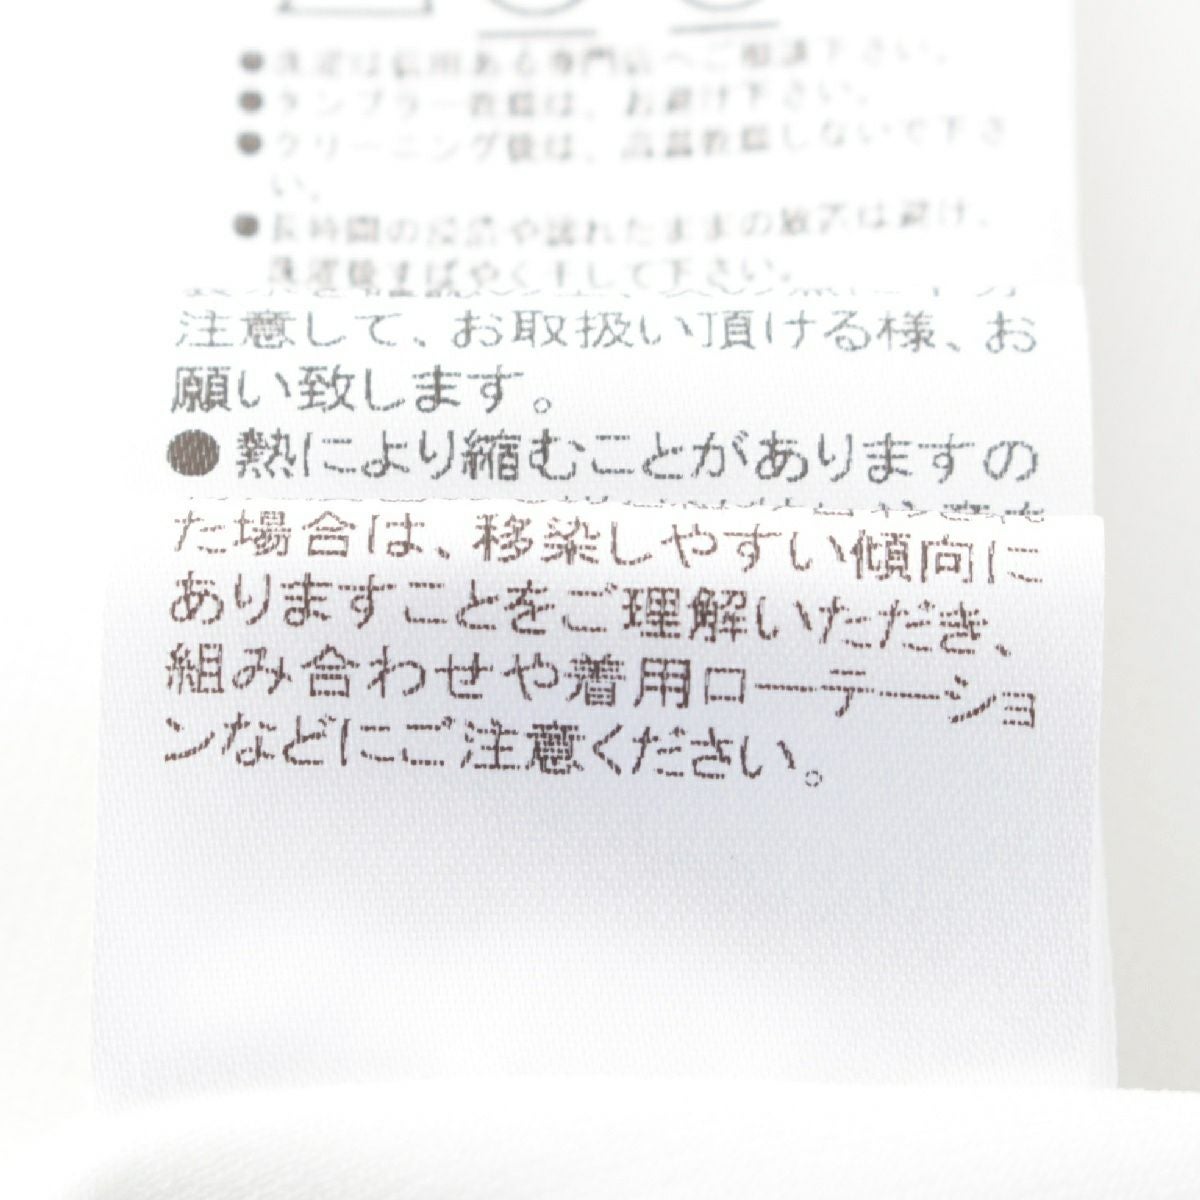 ●洗濯は信用ある専門店へご相談下さい。
●タンブラー乾燥は、お避け下さい。
●クリーニング後は、高温乾燥しないで下さ
い。
●長時間の浸漬や濡れたままの放置は避け、
洗濯後すばやく干して下さい。
注意して、お取扱い頂ける様、お
願い致します。
●熱により縮むことがありますの
た場合は、移染しやすい傾向に
ありますことをご理解いただき、
組み合わせや着用ローテーショ
ンなどにご注意ください。